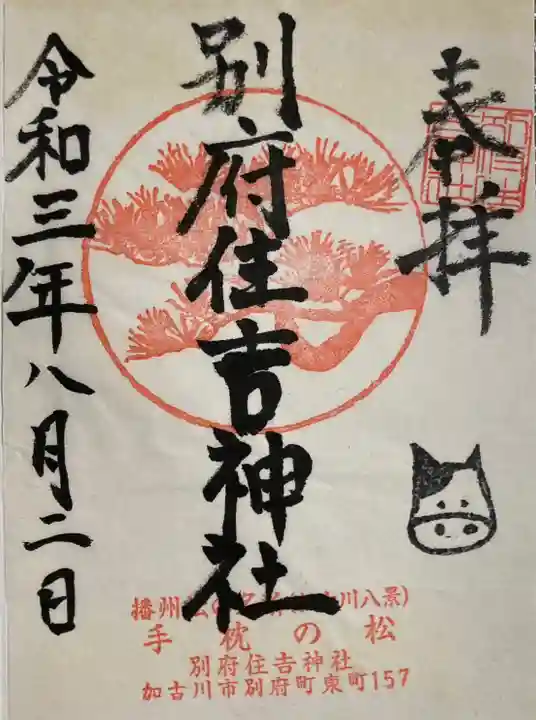 奉拝
別府住吉神社
令和三年八月二日
播州 川八景)
手枕の松
別府住吉神社
加古川市別府町東町157